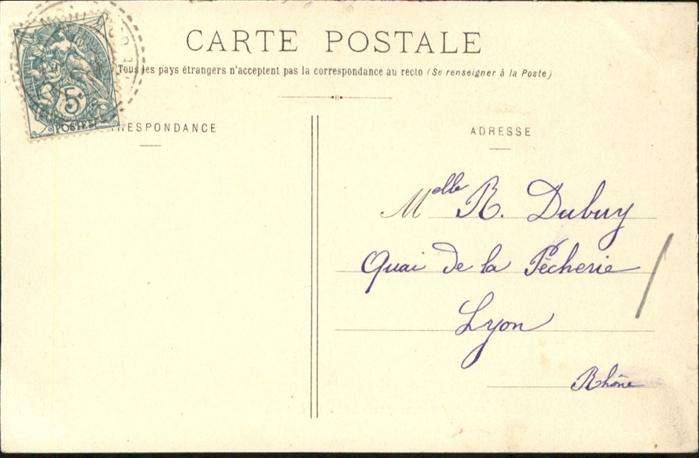 CARTE POSTALE
Tous les pays étrangers n'acceptent pas la correspondance au recto (Se renseigner à la Poste)
RESPONDANCE
ADRESSE
5
POSTES
Melle R. Dubuy
Quai de la Pêcherie
Lyon
Rhône